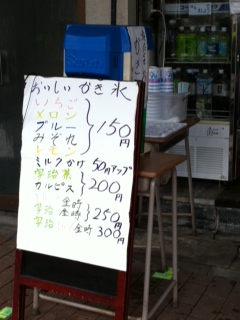 おいしい かき氷
いちご
メロン
ブルー
みぞれ
レモン
150円
ミルクかけ 50円アップ
宇治茶
カルピス
200円
金時
宇治金時
250円
宇治 金時 300円